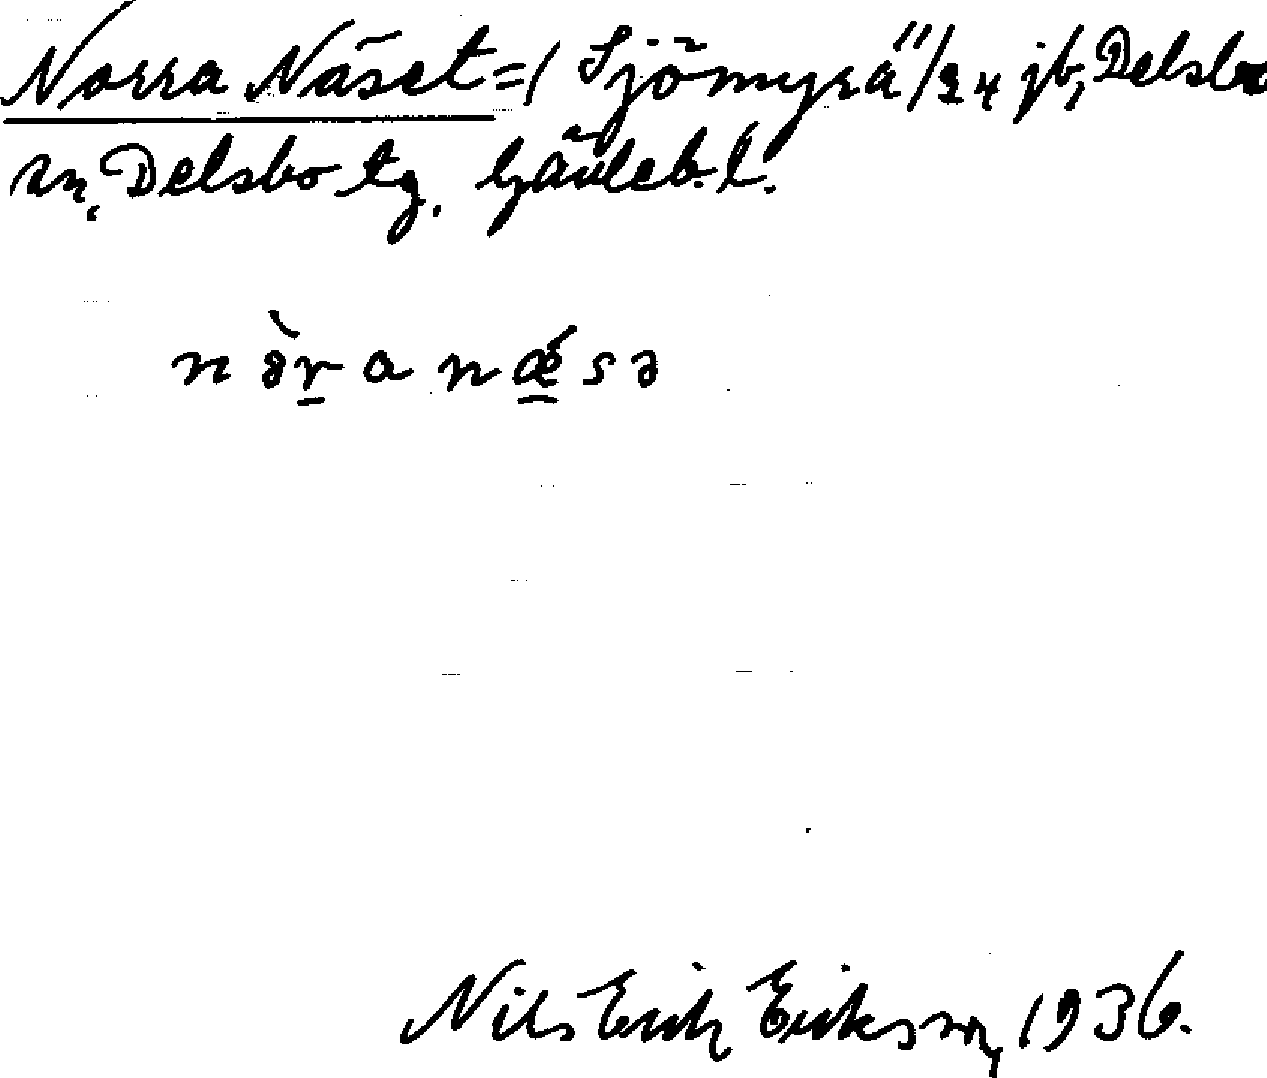 Norra Näset = ( Sjömyra" /24 jb, Delsbo
sn, Delsbo tg. Gävleb. l.
nə̀ra nǽ̲sə
Nils Erik Eriksson, 1936.